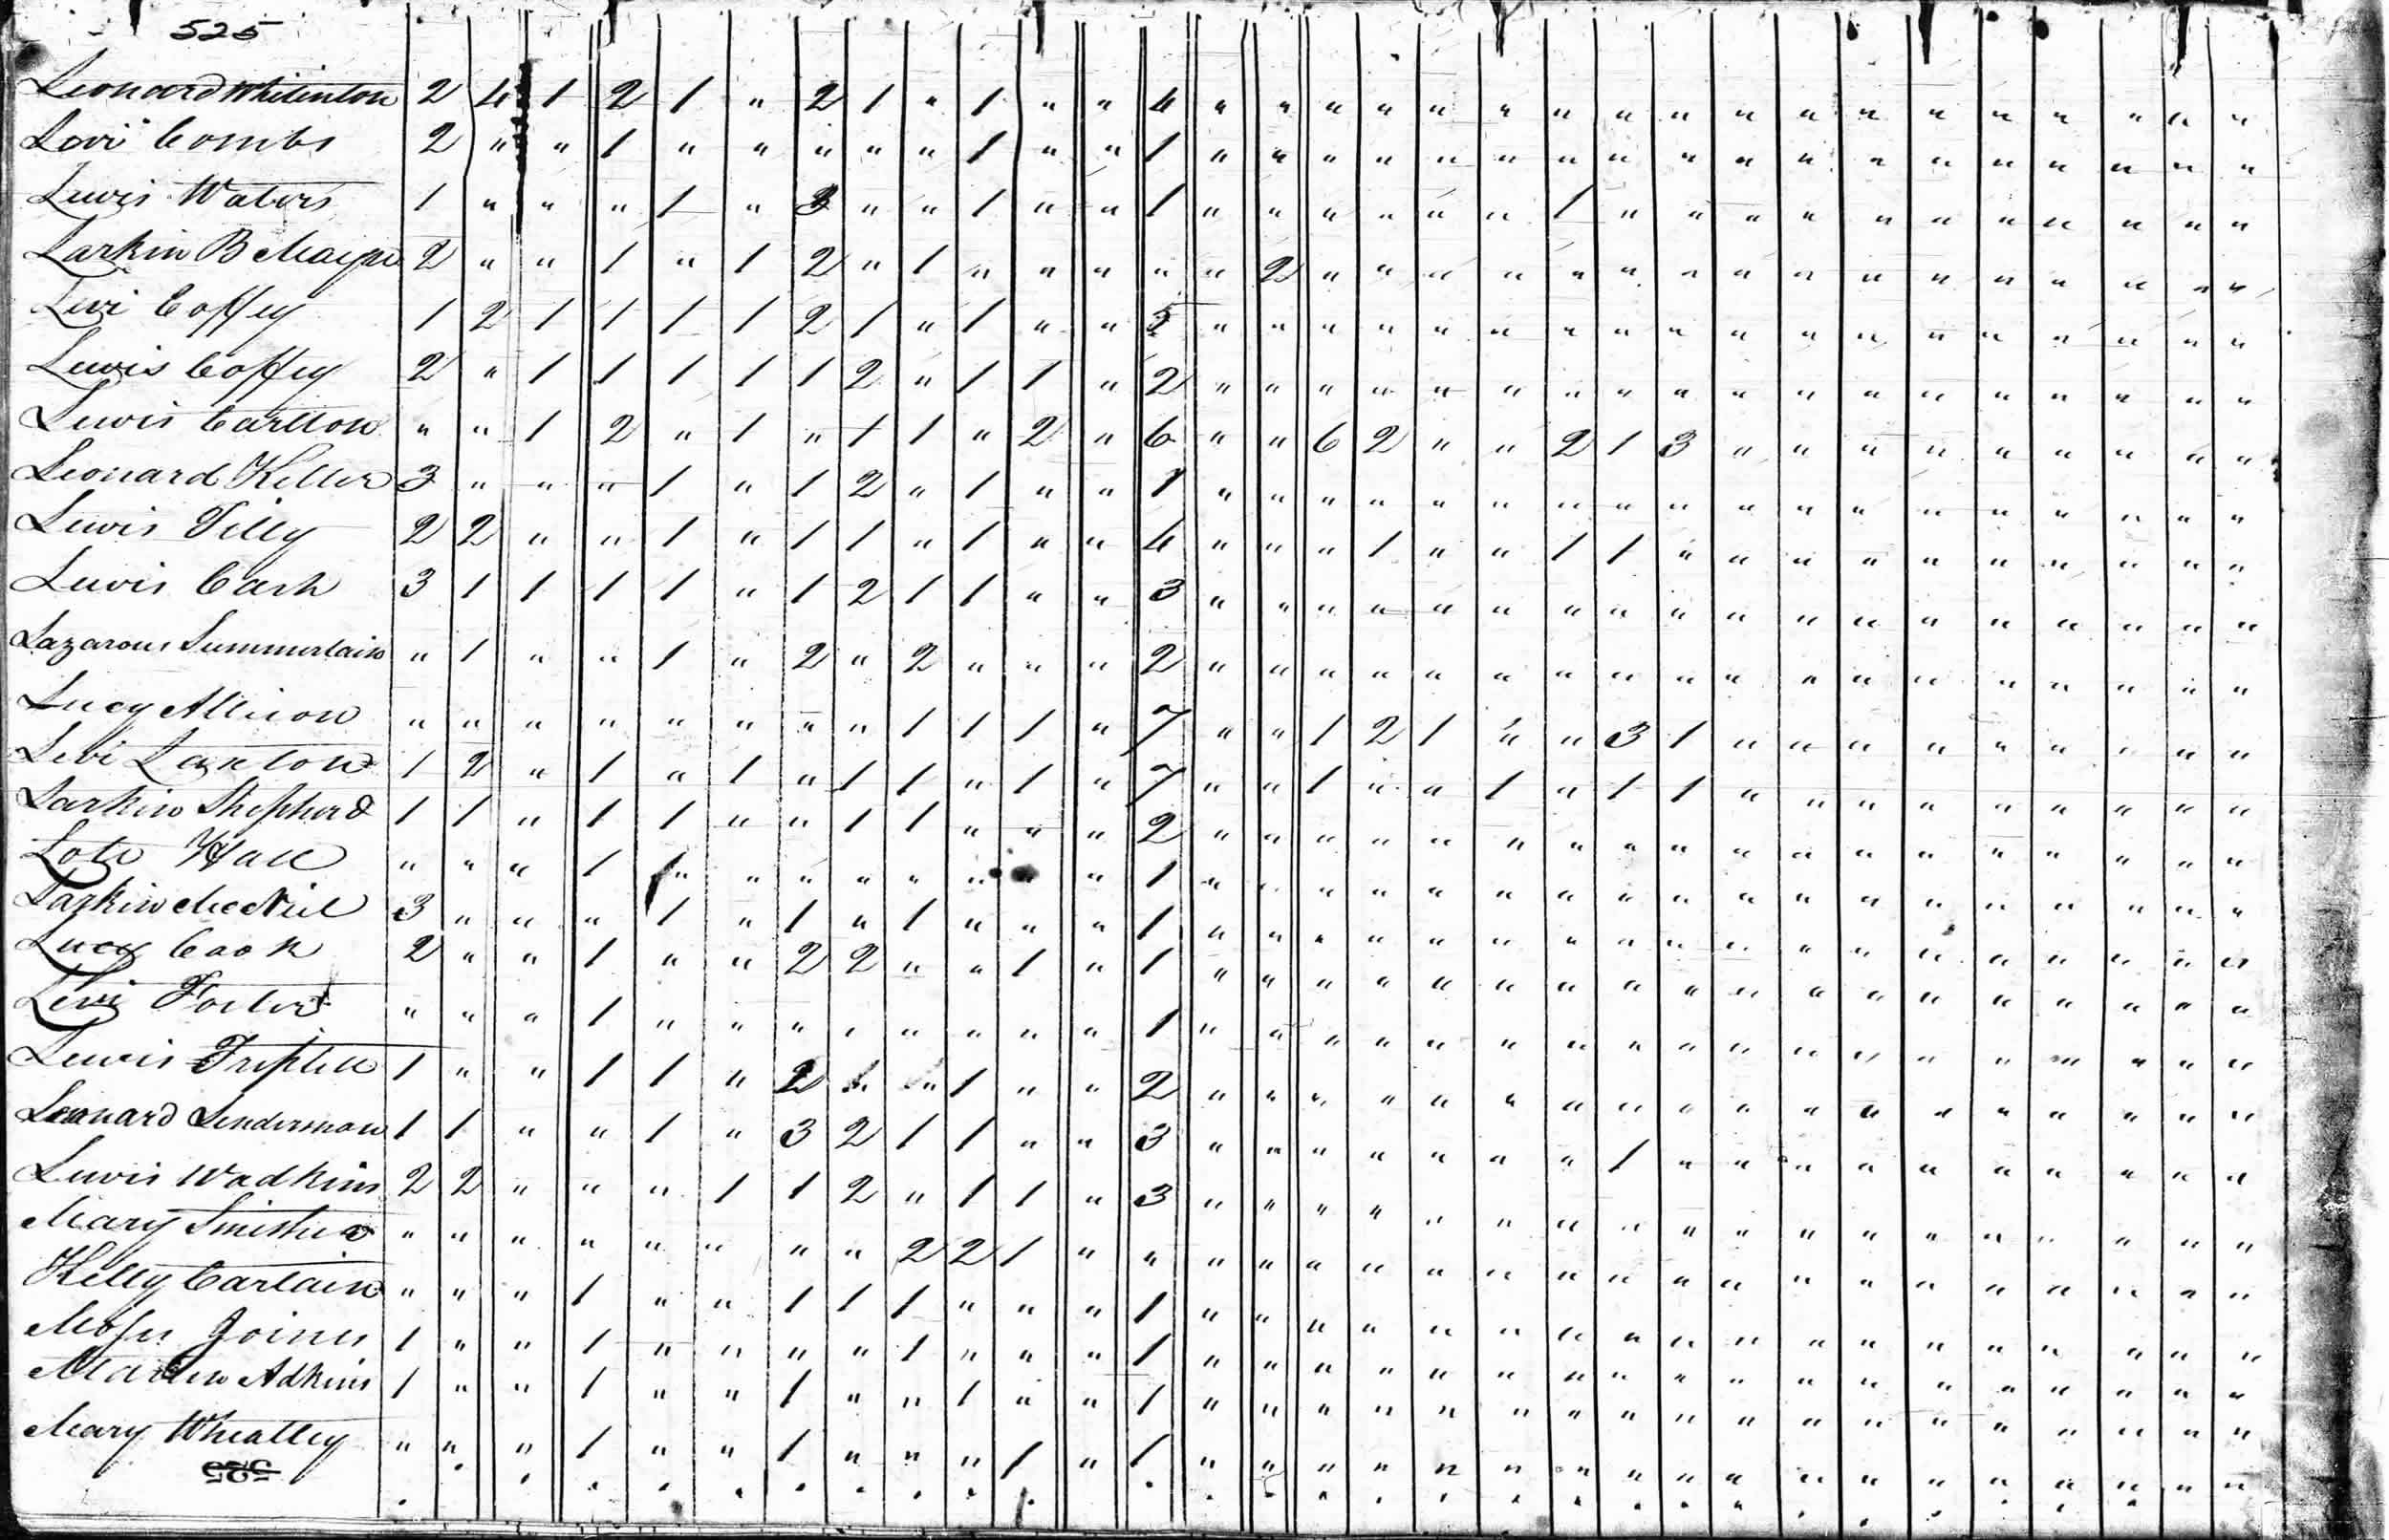 525
Leonard Whitinton 2 4 1 2 1 " 2 1 " 1 " " 4 " " " " " " " " " " " " " " " " "
Levi Combs 2 " " 1 " " " " " 1 " " 1 " " " " " " " " " " " " " " " " "
Lewis Waters 1 " " " 1 " 3 " " 1 " " 1 " " " " " " 1 " " " " " " " " " "
Larkin B 2 " " 1 " 1 2 " 1 " " " " " 2 " " " " " " " " " " " " " " "
Levi Coffey 1 2 1 1 1 1 2 1 " 1 " " 5 " " " " " " " " " " " " " " " " "
Lewis Coffey 2 " 1 1 1 1 1 2 " 1 1 " 2 " " " " " " " " " " " " " " " " "
Lewis Carlton " " 1 2 " 1 " 1 1 " 2 " 6 " " 6 2 " " 2 1 3 " " " " " " " "
Leonard Keller 3 " " " 1 " 1 2 " 1 " " 1 " " " " " " " " " " " " " " " " "
Lewis Tilly 2 2 " " 1 " 1 1 " 1 " " 4 " " " 1 " " 1 1 " " " " " " " " "
Lewis Cash 3 1 1 1 1 " 1 2 1 1 " " 3 " " " " " " " " " " " " " " " " "
Lazarous Summerlain " 1 " " 1 " 2 " 2 " " " 2 " " " " " " " " " " " " " " " " "
Lucy Allison " " " " " " " " 1 1 1 " 7 " " 1 2 1 " " 3 1 " " " " " " " "
Levi Laxton 1 2 " 1 " 1 " 1 1 " 1 " 7 " " 1 " " 1 " 1 1 " " " " " " " "
Larkin Shepherd 1 1 " 1 1 " " 1 1 " " " 2 " " " " " " " " " " " " " " " " "
Hall " " " 1 " " " " " " " " 1 " " " " " " " " " " " " " " " " "
Larkin McNiel 3 " " " 1 " 1 " 1 " " " 1 " " " " " " " " " " " " " " " " "
Lucy Cook 2 " " 1 " " 2 2 " " 1 " 1 " " " " " " " " " " " " " " " " "
Levi Foster " " " 1 " " " " " " " " 1 " " " " " " " " " " " " " " " " "
Lewis Triplett 1 " " 1 1 " 2 " 1 " " 2 " " " " " " " " " " " " " " " " "
Leonard Lenderman 1 1 " " 1 " 3 2 1 1 " " 3 " " " " " " " 1 " " " " " " " " "
Lewis Wadkins 2 2 " " " 1 1 2 " 1 1 " 3 " " " " " " " " " " " " " " " " "
Mary " " " " " " " " 2 2 1 " " " " " " " " " " " " " " " " " " "
Kelly " " " 1 " " 1 1 1 " " " 1 " " " " " " " " " " " " " " " " "
Moses Joines 1 " " 1 " " " " 1 " " " 1 " " " " " " " " " " " " " " " " "
Adkins 1 " " 1 " " 1 " " 1 " " 1 " " " " " " " " " " " " " " " " "
Mary Wheatley " " " 1 " " 1 " " " 1 " 1 " " " " " " " " " " " " " " " " "
525